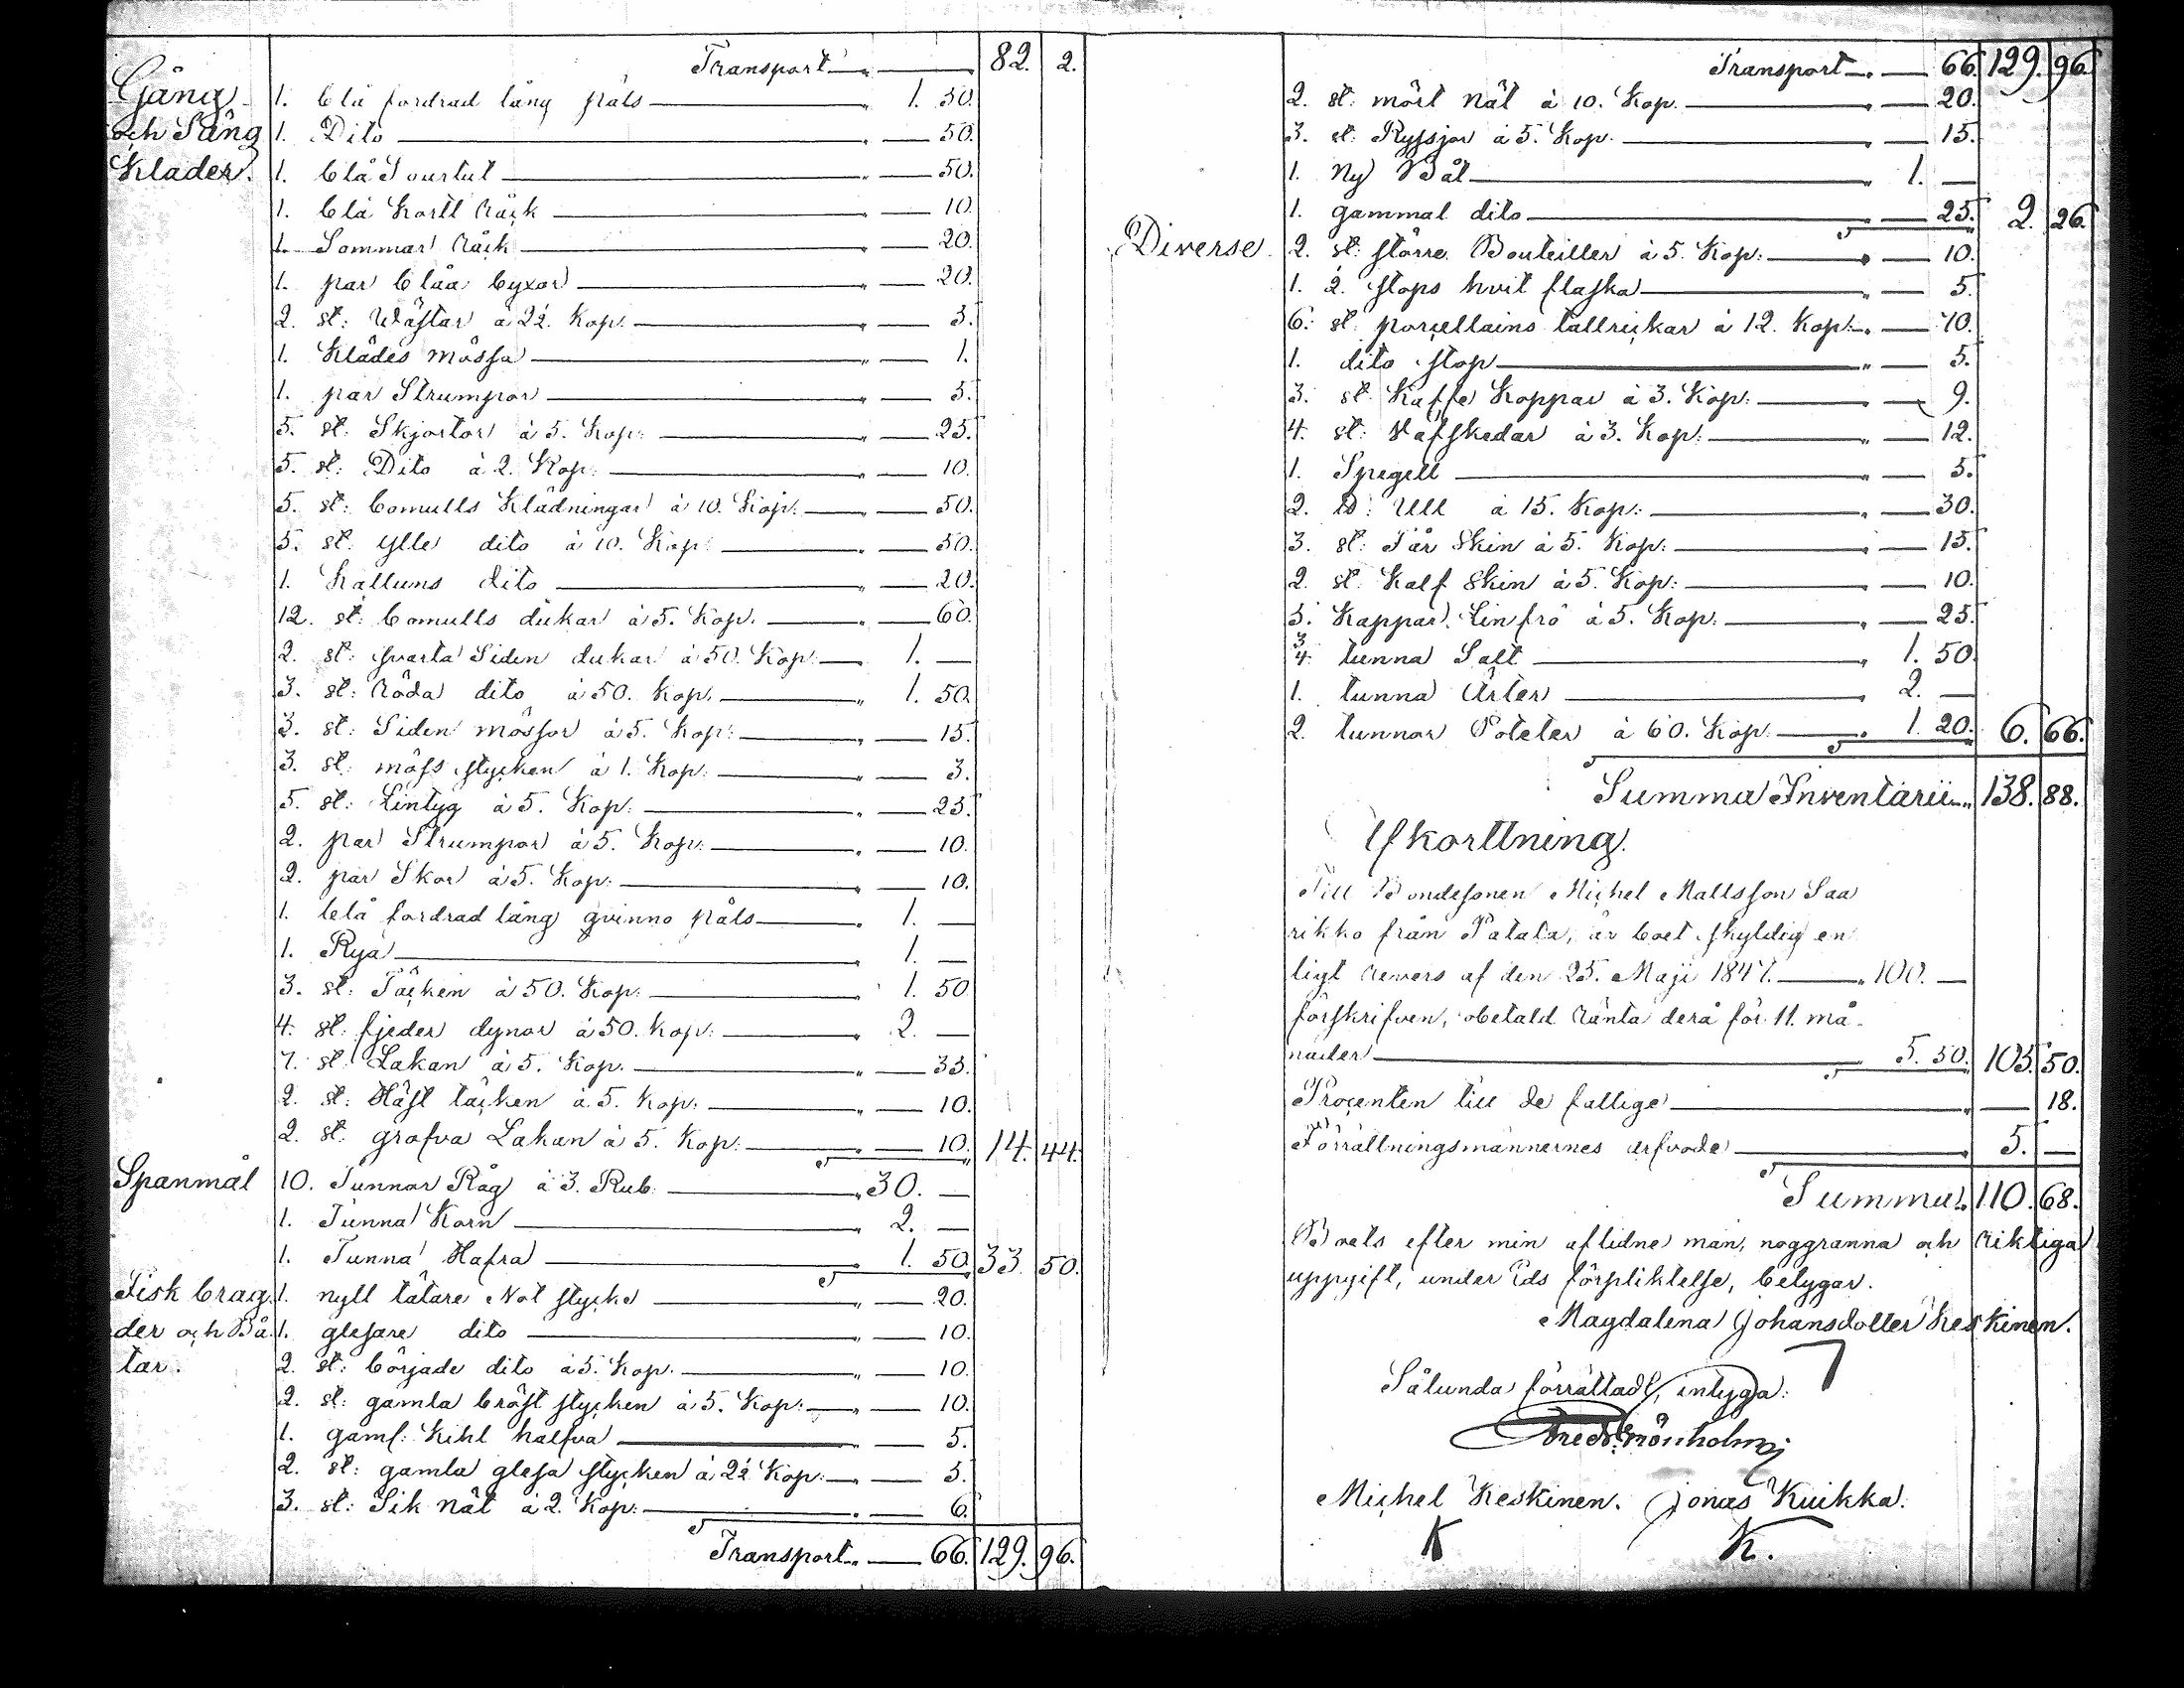 Transport 82. 2.
Gång 1. blå fordrad lång päls 1. 50.
och Säng 1. Dito 50.
Kläder. 1. blå Sourtut 50.
1. blå kortt råck 10.
1. Sommar råck 20.
1. par blåa byxor 20.
2. st: Wästar à 2½. Kop. 5.
1. Klädes mössa 1.
1. par Strumpor 5.
5. st: Skjortor à 5. Kop: 25.
5. st: Dito à 2. Kop: 10.
5. st: bomulls Klädningar à 10. Kop. 50.
5. st: ylle dito à 10. Kop: 50.
1. Kattuns dito 20.
12. st: bomulls dukar à 5. Kop. 60.
2. st: svarta Siden dukar à 50. Kop 1. —
3. st: röda dito à 50. Kop. 1. 50.
3. st: Siden mössor à 5. Kop: 15.
3. st: möss stycken à 1. Kop: 3.
5. st: Lintyg à 5. Kop: 25.
2. par Strumpor à 5. Kop: 10.
2. par Skor à 5. Kop: 10.
1. blå fordrad lång qvinno päls 1. —
1. Rya 1. —
3. st: Täcken à 50. Kop: 1. 50
4. st: fjeder dynor à 50. Kop: 2. —
7. st: Lakan à 5. Kop. 35.
2. st: Häst täcken à 5. Kop: 10.
2. st: grofva Lakan à 5. Kop: 10. 14. 44.
Spanmål 10. Tunnor Råg à 3. Rub. 30. —
1. Tunna Korn 2. —
1. Tunna Hafra 1. 50. 33. 50.
Fisk brag 1. nytt tätare Not stycke 20.
der och Bå 1. glesare dito 10.
tar. 2. st: började dito à 5. Kop. 10.
2. st: gamla bröst stycken à 5. Kop: 10.
1. gam: Kihl halfva 5.
2. st: gamla glesa stycken à 2½ Kop: 5.
3. st: Sik nät à 2. Kop: 6.
Transport 66. 129. 96.
Transport 66. 129. 96.
2. st: mört nät à 10. Kop. 20.
3. st: Ryssjor à 5. Kop. 15.
1. Ny Båt 1. —
1. gammal dito 25. 2. 26.
Diverse 2. st: större Bouteiller à 5. Kop: 10.
1. 2. stops hvit flaska 5.
6. st: porcellains tallrickar à 12. Kop: 70.
1. dito stop 5.
3. st Kaffe Koppar à 3. Kop: 9.
4. st: Väfskedar à 3. Kop: 12.
1. Spegell 5.
2. ℔: Ull à 15. Kop: 30.
3. st: Får Skin à 5. Kop: 15.
2. st: Kalf Skin à 5. Kop: 10.
5. Kappar Linfrö à 5. Kop: 25.
¾ tunna Salt 1. 50.
1. tunna Ärter 2. —
2. tunnor Poteter à 60. Kop. 1. 20. 6. 66.
Summa Inventarii 138. 88.
Afkorttning.
Till Bondesonen Michel Mattsson Saa
rikko från Patala, är boet skyldig en
ligt revers af den 25. Maji 1847. 100. —
förskrifven, obetald ränta derå för 11. må
nader 5. 50. 105. 50.
Procenten till de fattige — 18.
Förrättningsmännernes arfvode 5. —
Summa. 110. 68.
Boets efter min aflidne man, noggranna och riktiga
uppgift, under Eds förpliktelse, betygar.
Magdalena Johansdotter Keskinen.
Sålunda förrättadt, intyga:
Fred. Grönholm
Michel Keskinen. Jonas Kuikka.
K K.